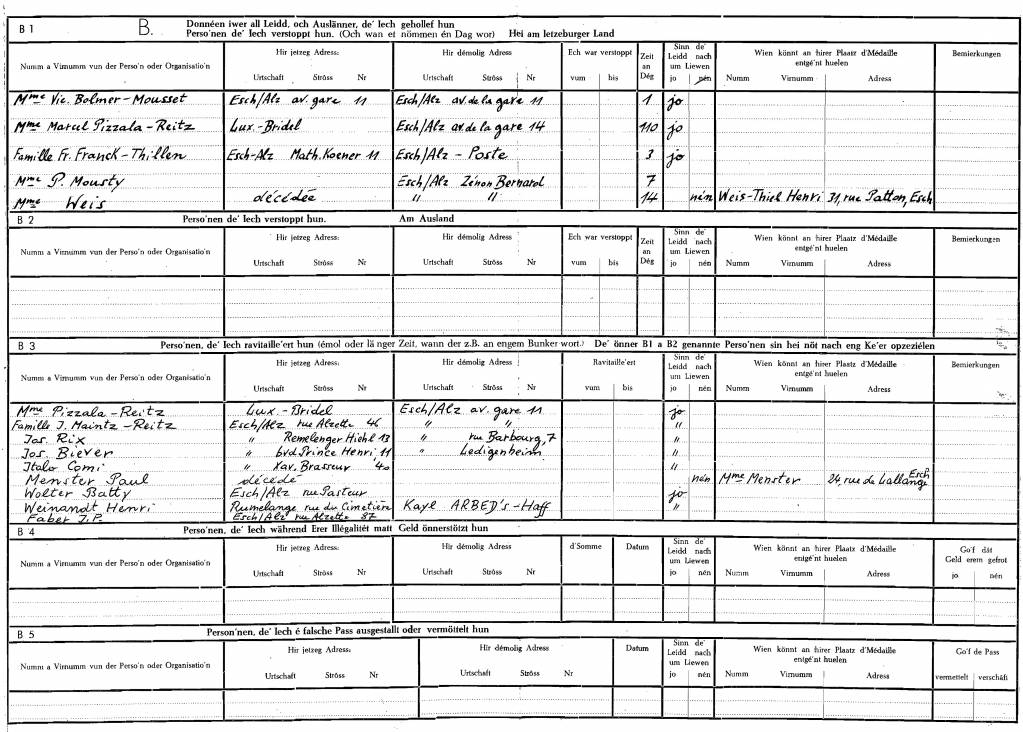 B 1 B. Donnéen iwer all Leidd, och Auslänner, de' Iech gehollef hun
Perso'nen de' Iech verstoppt hun. (Och wan et nömmen én Dag wor) Hei am letzeburger Land
Numm a Virnumm vun der Perso'n oder Organisatio'n Hir jetzeg Adress: Hir démolig Adress Ech war verstoppt Zeit an Dég Sinn de' Leidd nach um Liewen Wien könnt an hirer Plaatz d'Médaille entgé'nt huelen Bemierkungen
Urtschaft Ströss Nr Urtschaft Ströss Nr vum bis jo nén Numm Virnumm Adress
Mme Vic. Bolmer-Mousset Esch/Alz av. gare 11 Esch/Alz av. de la gare 11 1 jo
Mme Marcel Pizzala-Reitz Lux.-Bridel Esch/Alz av. de la gare 14 110 jo
Famille Fr. Franck-Thillen Esch-Alz Math. Koener 11 Esch/Alz - Poste 3 jo
Mme P. Mousty Esch/Alz Zénon Bernard 7
Mme Weis décédée " " 14 nén Weis-Thiel Henri 31, rue Patton, Esch
B 2 Perso'nen de' Iech verstoppt hun. Am Ausland
Numm a Virnumm vun der Perso'n oder Organisatio'n Hir jetzeg Adress: Hir démolig Adress Ech war verstoppt Zeit an Dég Sinn de' Leidd nach um Liewen Wien könnt an hirer Plaatz d'Médaille entgé'nt huelen Bemierkungen
Urtschaft Ströss Nr Urtschaft Ströss Nr vum bis jo nén Numm Virnumm Adress
B 3 Perso'nen, de' Iech ravitaille'ert hun (émol oder länger Zeit, wann der z.B. an engem Bunker wort.) De' önner B1 a B2 genannte Perso'nen sin hei nöt nach eng Ke'er opzeziélen
Numm a Virnumm vun der Perso'n oder Organisatio'n Hir jetzeg Adress: Hir démolig Adress Ravitaille'ert Sinn de' Leidd nach um Liewen Wien könnt an hirer Plaatz d'Médaille entgé'nt huelen Bemierkungen
Urtschaft Ströss Nr Urtschaft Ströss Nr vum bis jo nén Numm Virnumm Adress
Mme Pizzala-Reitz Lux.-Bridel Esch/Alz av. gare 11 jo
Famille J. Maintz-Reitz Esch/Alz rue Alzette 46 " " "
Jos. Rix " Remelenger Hiehl 13 " rue Barbourg, 7 "
Jos. Biever " bvd Prince Henri, 11 " Ledigenheim "
Italo Comi " Xav. Brasseur 40 "
Menster Paul décédé nén Mme Menster 24, rue de Lallange Esch
Wolter Batty Esch/Alz rue Pasteur jo
Weinandt Henri Rumelange rue du Cimetière Kayl ARBED's-Haff "
Faber J.P. Esch/Alz rue Alzette 87
B 4 Perso'nen, de' Iech während Erer Illégalitét matt Geld önnerstötzt hun
Numm a Virnumm vun der Perso'n oder Organisatio'n Hir jetzeg Adress: Hir démolig Adress d'Somme Datum Sinn de' Leidd nach um Liewen Wien könnt an hirer Plaatz d'Médaille entgé'nt huelen Go'f dât Geld erem gefrot
Urtschaft Ströss Nr Urtschaft Ströss Nr jo nén Numm Virnumm Adress jo nén
B 5 Person'nen, de' Iech é falsche Pass ausgestallt oder vermöttelt hun
Numm a Virnumm vun der Perso'n oder Organisatio'n Hir jetzeg Adress: Hir démolig Adress Datum Sinn de' Leidd nach um Liewen Wien könnt an hirer Plaatz d'Médaille entgé'nt huelen Go'f de Pass
Urtschaft Ströss Nr Urtschaft Ströss Nr jo nén Numm Virnumm Adress vermettelt verschâft